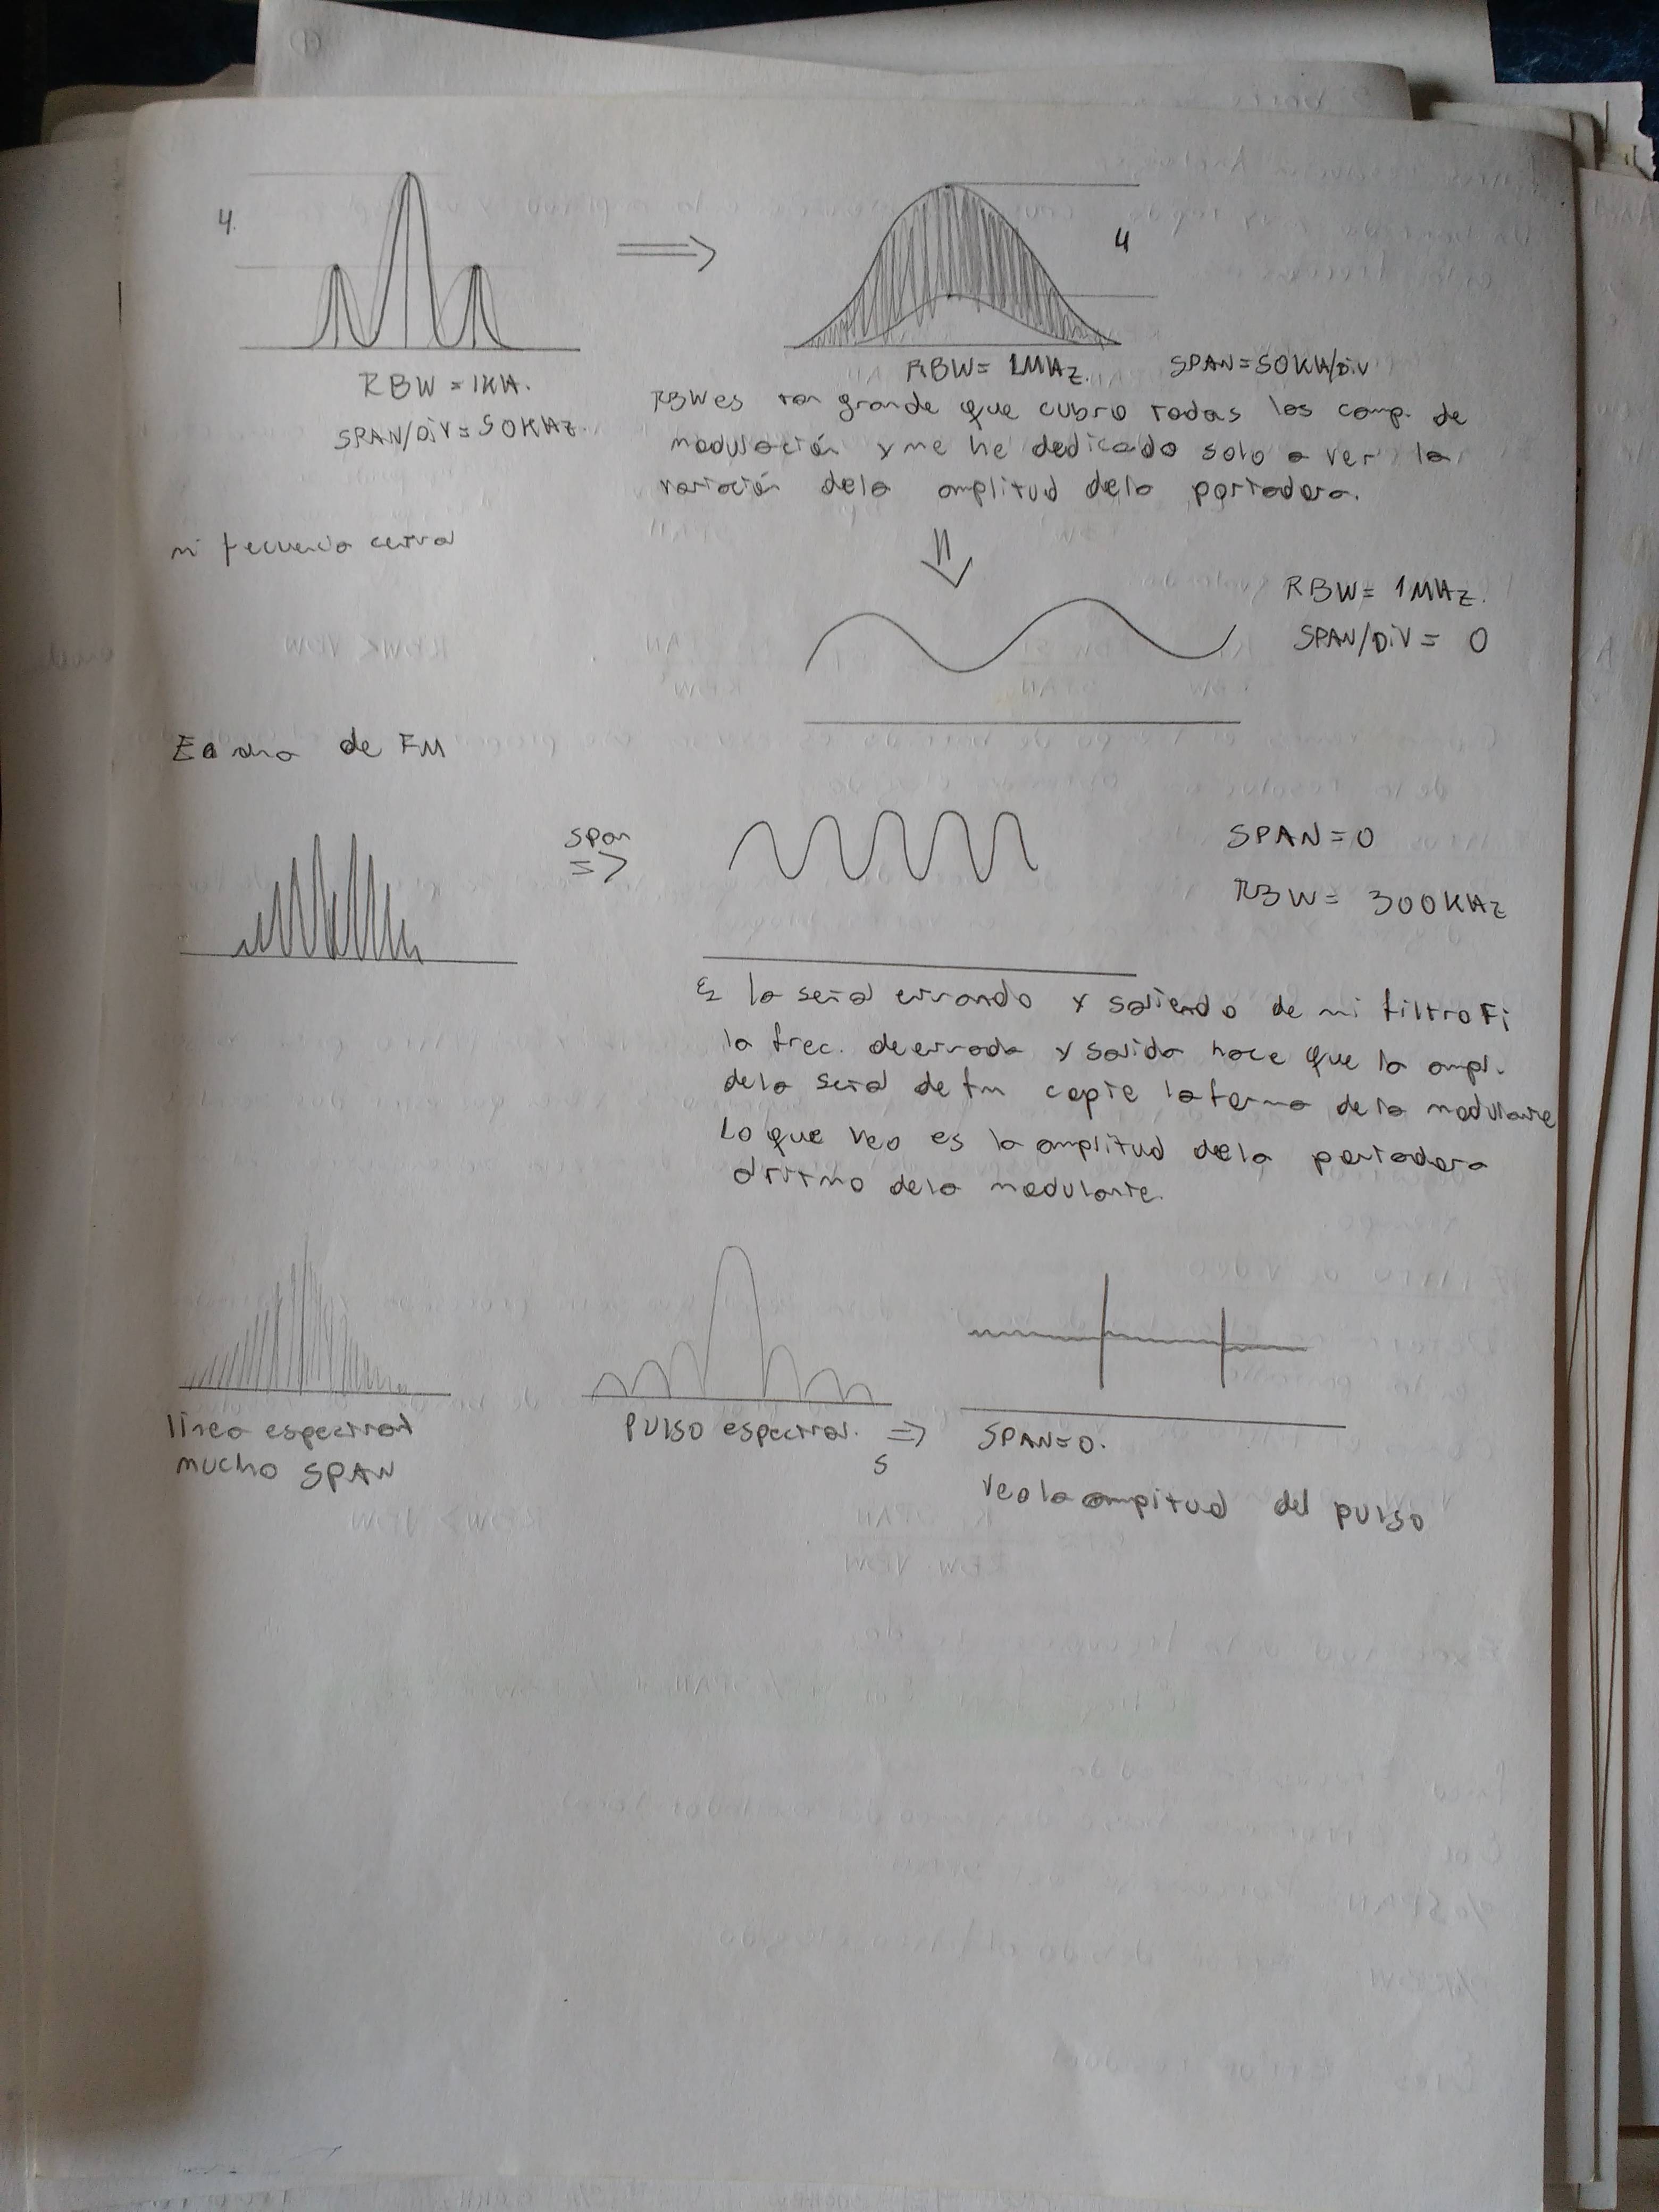 4.
4
RBW = 1KH.
SPAN/DiV = 50KHz.
RBW = 1MHz. SPAN = 50KH/Div
RBW es tan grande que cubro todas las comp. de
modulación y me he dedicado solo a ver la
variación de la amplitud de la portadora.
mi fecuencia
RBW = 1MHz.
SPAN/DiV = 0
de FM
span
SPAN = 0
RBW = 300KHz
la señal entrando y saliendo de mi filtro Fi
la frec. de entrada y salida hace que la ampl.
de la señal de fm copie la forma de la modulante
Lo que veo es la amplitud de la portadora
al ritmo de la modulante.
línea espectral
mucho SPAN
PULSO espectral.
S
SPAN=0.
Veo la ampitud del pulso